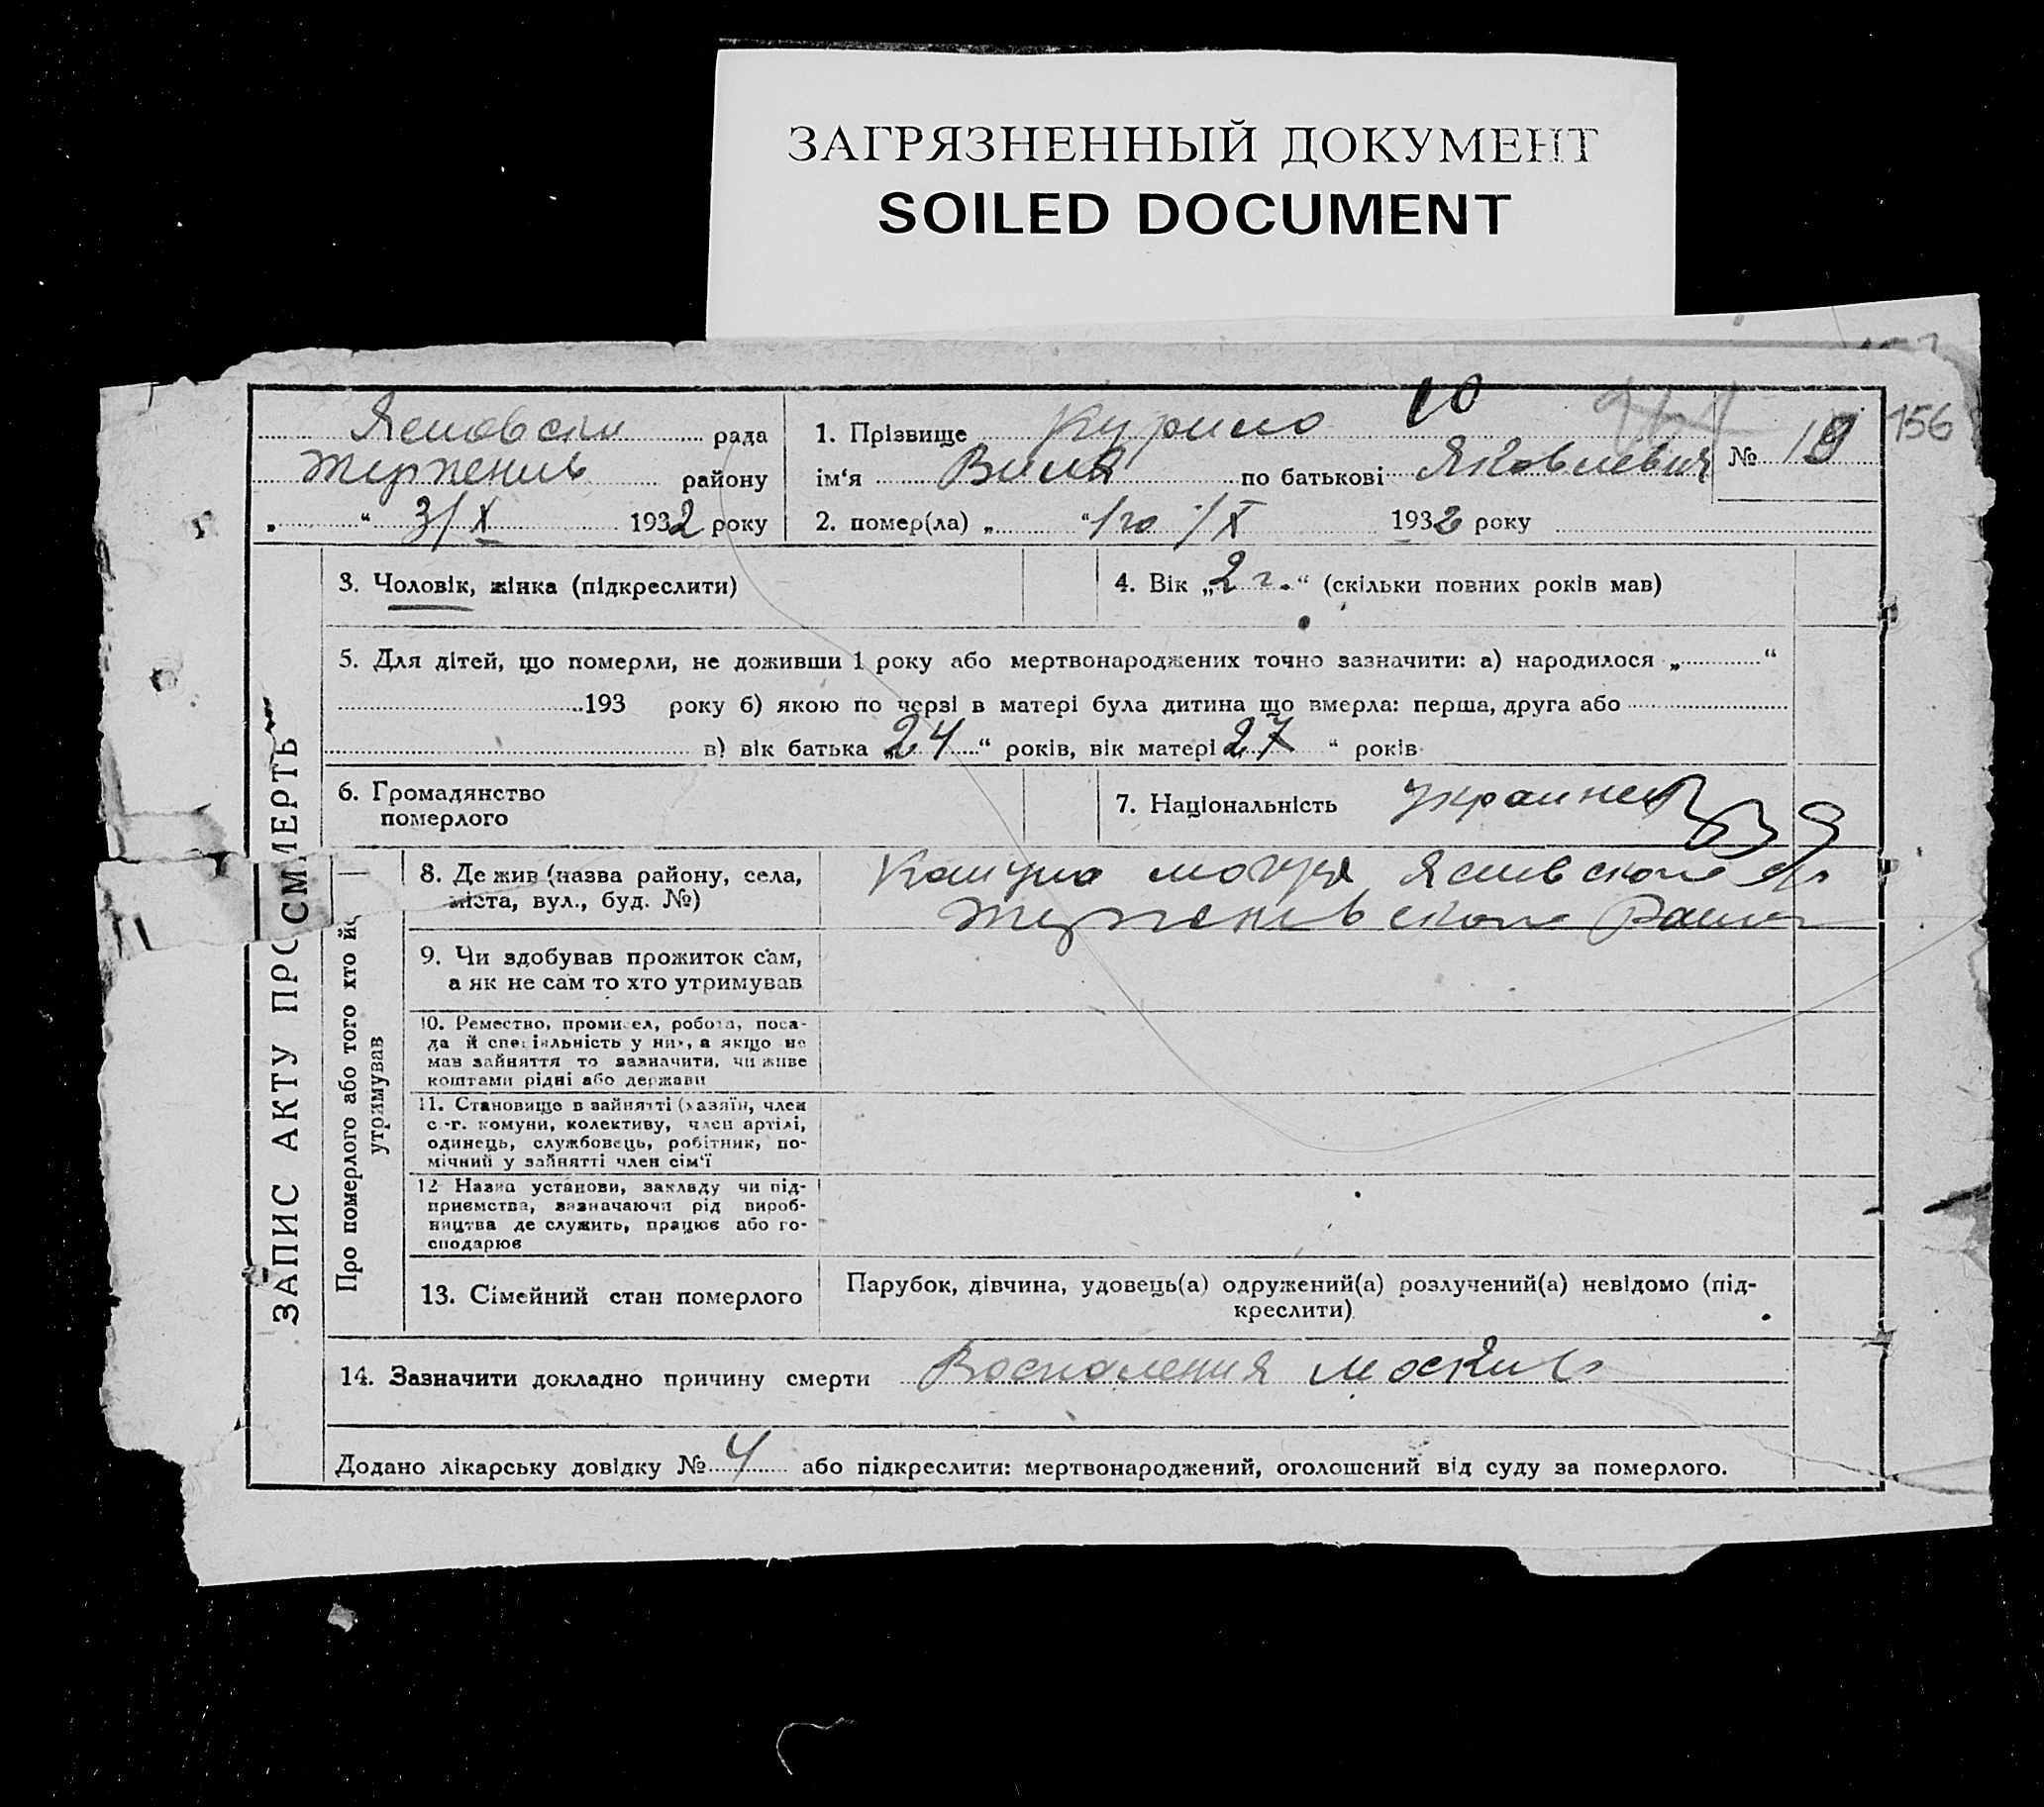 ЗАГРЯЗНЕННЫЙ ДОКУМЕНТ
SOILED DOCUMENT
156
рада
району
„ “ 3/X 1932 року
10
1. Прізвище Курило
ім‘я Виля по батькові Яковлевич
№ 19
2. помер(ла) „ “ 1го /X 1932 року
ЗАПИС АКТУ ПРО СМЕРТЬ
3. Чоловік, жінка (підкреслити)
4. Вік „2 г.“ (скільки повних років мав)
5. Для дітей, що померли, не доживши 1 року або мертвонароджених точно зазначити: а) народилося „ “
193 року б) якою по черзі в матері була дитина що вмерла: перша, друга або
в) вік батька „24“ років, вік матері 27 “ років
6. Громадянство
померлого
7. Національність украинец
Про померлого або того хто йо
утримував
8. Де жив (назва району, села,
міста, вул., буд. №)
9. Чи здобував прожиток сам,
а як не сам то хто утримував
10. Ремество, промисел, робота, поса-
да й спеціяльність у них, а якщо не
мав зайняття то зазначити, чи живе
коштами рідні або держави
11. Становище в зайнятті (хазяїн, член
с.-г. комуни, колективу, член артілі,
одинець, службовець, робітник, по-
мічний у зайнятті член сім‘ї
12 Назва установи, закладу чи під-
приємства, зазначаючи рід вироб-
ництва де служить, працює або го-
сподарює
13. Сімейний стан померлого
Парубок, дівчина, удовець(а) одружений(а) розлучений(а) невідомо (під-
креслити)
14. Зазначити докладно причину смерти Воспаления
Додано лікарську довідку № 4 або підкреслити: мертвонароджений, оголошений від суду за померлого.